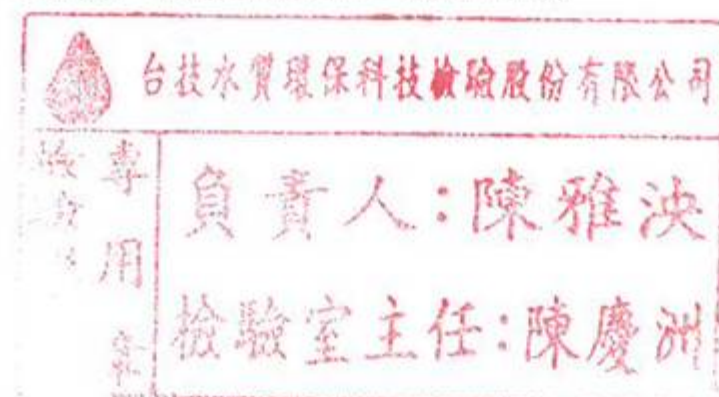 台技水質環保科技檢驗股份有限公司
專用章
負責人：陳雅泱
檢驗室主任：陳慶洲